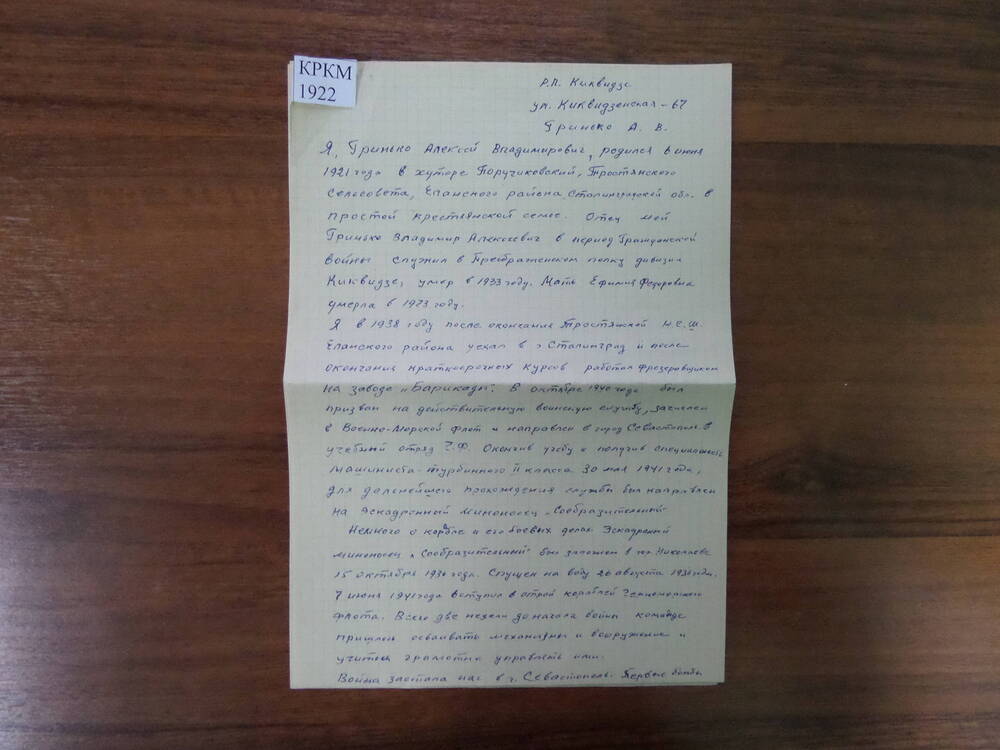 КРКМ
1922
Р.П. Киквидзе
ул. Киквидзенская - 67
Гринько А. В.
Я, Гринько Алексей Владимирович, родился 6 июня
1921 года в хуторе Поручиковский, Тростянского
Сельсовета, Еланского района Сталинградской обл. в
простой крестьянской семье. Отец мой
Гринько Владимир Алексеевич в период Гражданской
войны служил в Преображенском полку дивизии
Киквидзе, умер в 1933 году. Мать Ефимия Федоровна
умерла в 1923 году.
Я в 1938 году после окончания Тростянской Н.С.Ш.
Еланского района уехал в г. Сталинград и после
окончания краткосрочных курсов работал фрезеровщиком
на заводе "Барикады". В октябре 1940 года был
призван на действительную воинскую службу, зачислен
в Военно-Морской флот и направлен в город Севастополь в
учебный отряд Ч.Ф. Окончив учебу и получив специальность
машиниста-турбинного II класса 30 мая 1941 года,
для дальнейшего прохождения службы был направлен
на Эскадренный миноносец "Сообразительный"
Немного о корабле и его боевых делах Эскадренный
миноносец "Сообразительный" был заложен в гор. Николаеве
15 октября 1936 года. Спущен на воду 26 августа 1939 года.
7 июня 1941 года вступил в строй кораблей Черноморского
флота. Всего две недели до начала войны команде
пришлось осваивать механизмы и вооружение и
учиться грамотно управлять ими.
Война застала нас в г. Севастополь. Первые бомбы